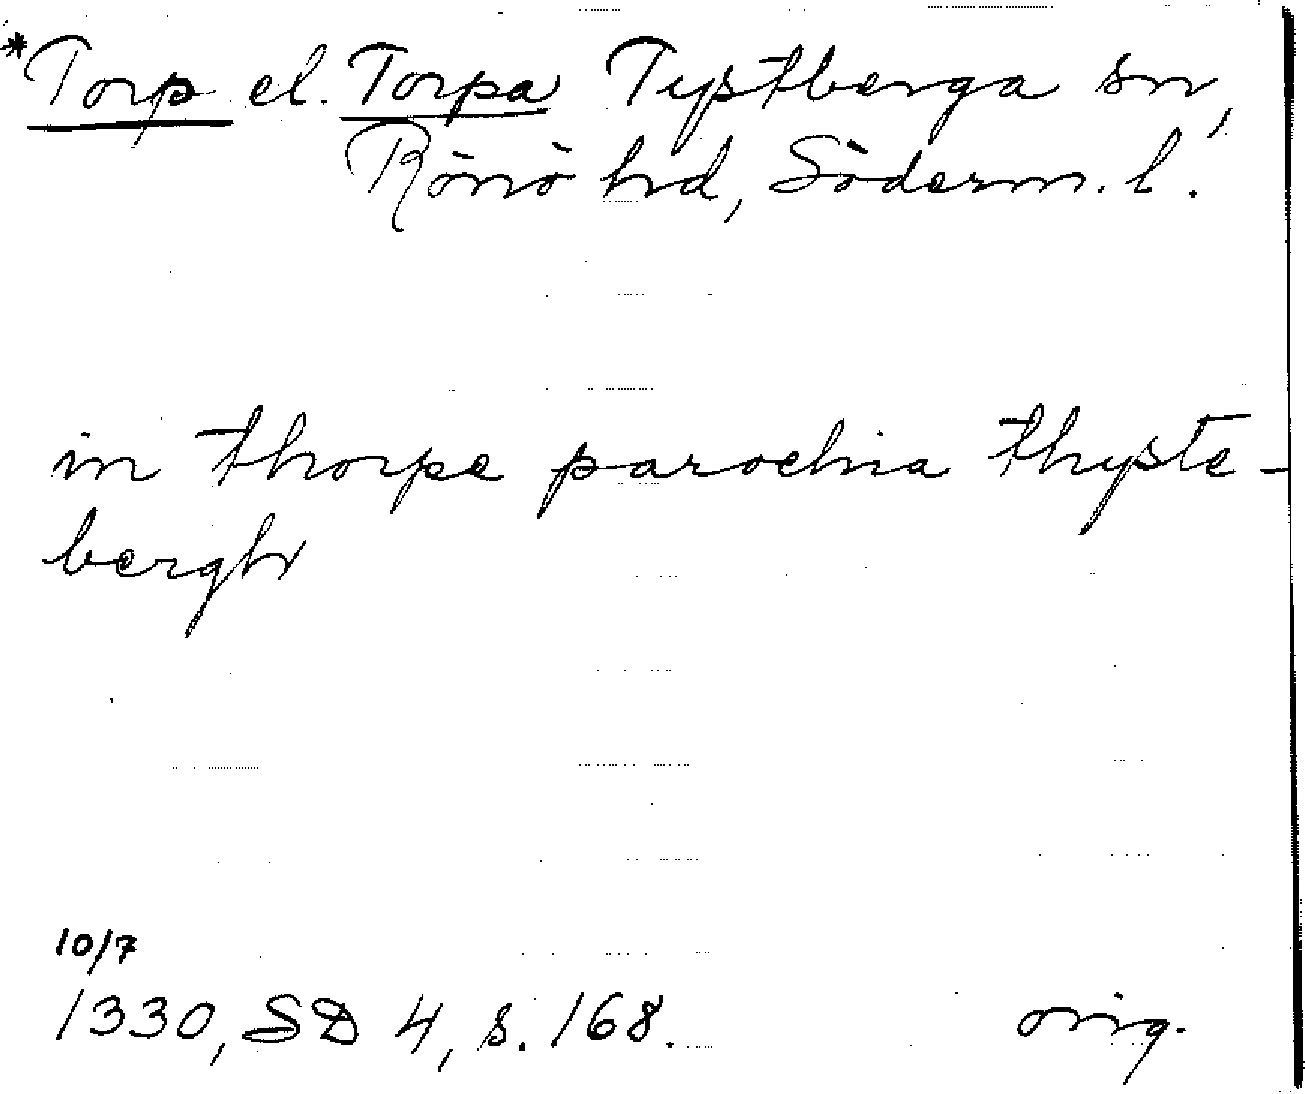 *Torp el. Torpa Tystberga sn,
Rönö hd, Söderm. l.
in thorpe parochia thyste-
bergh
10/7
1330, SD 4, s. 168. orig.